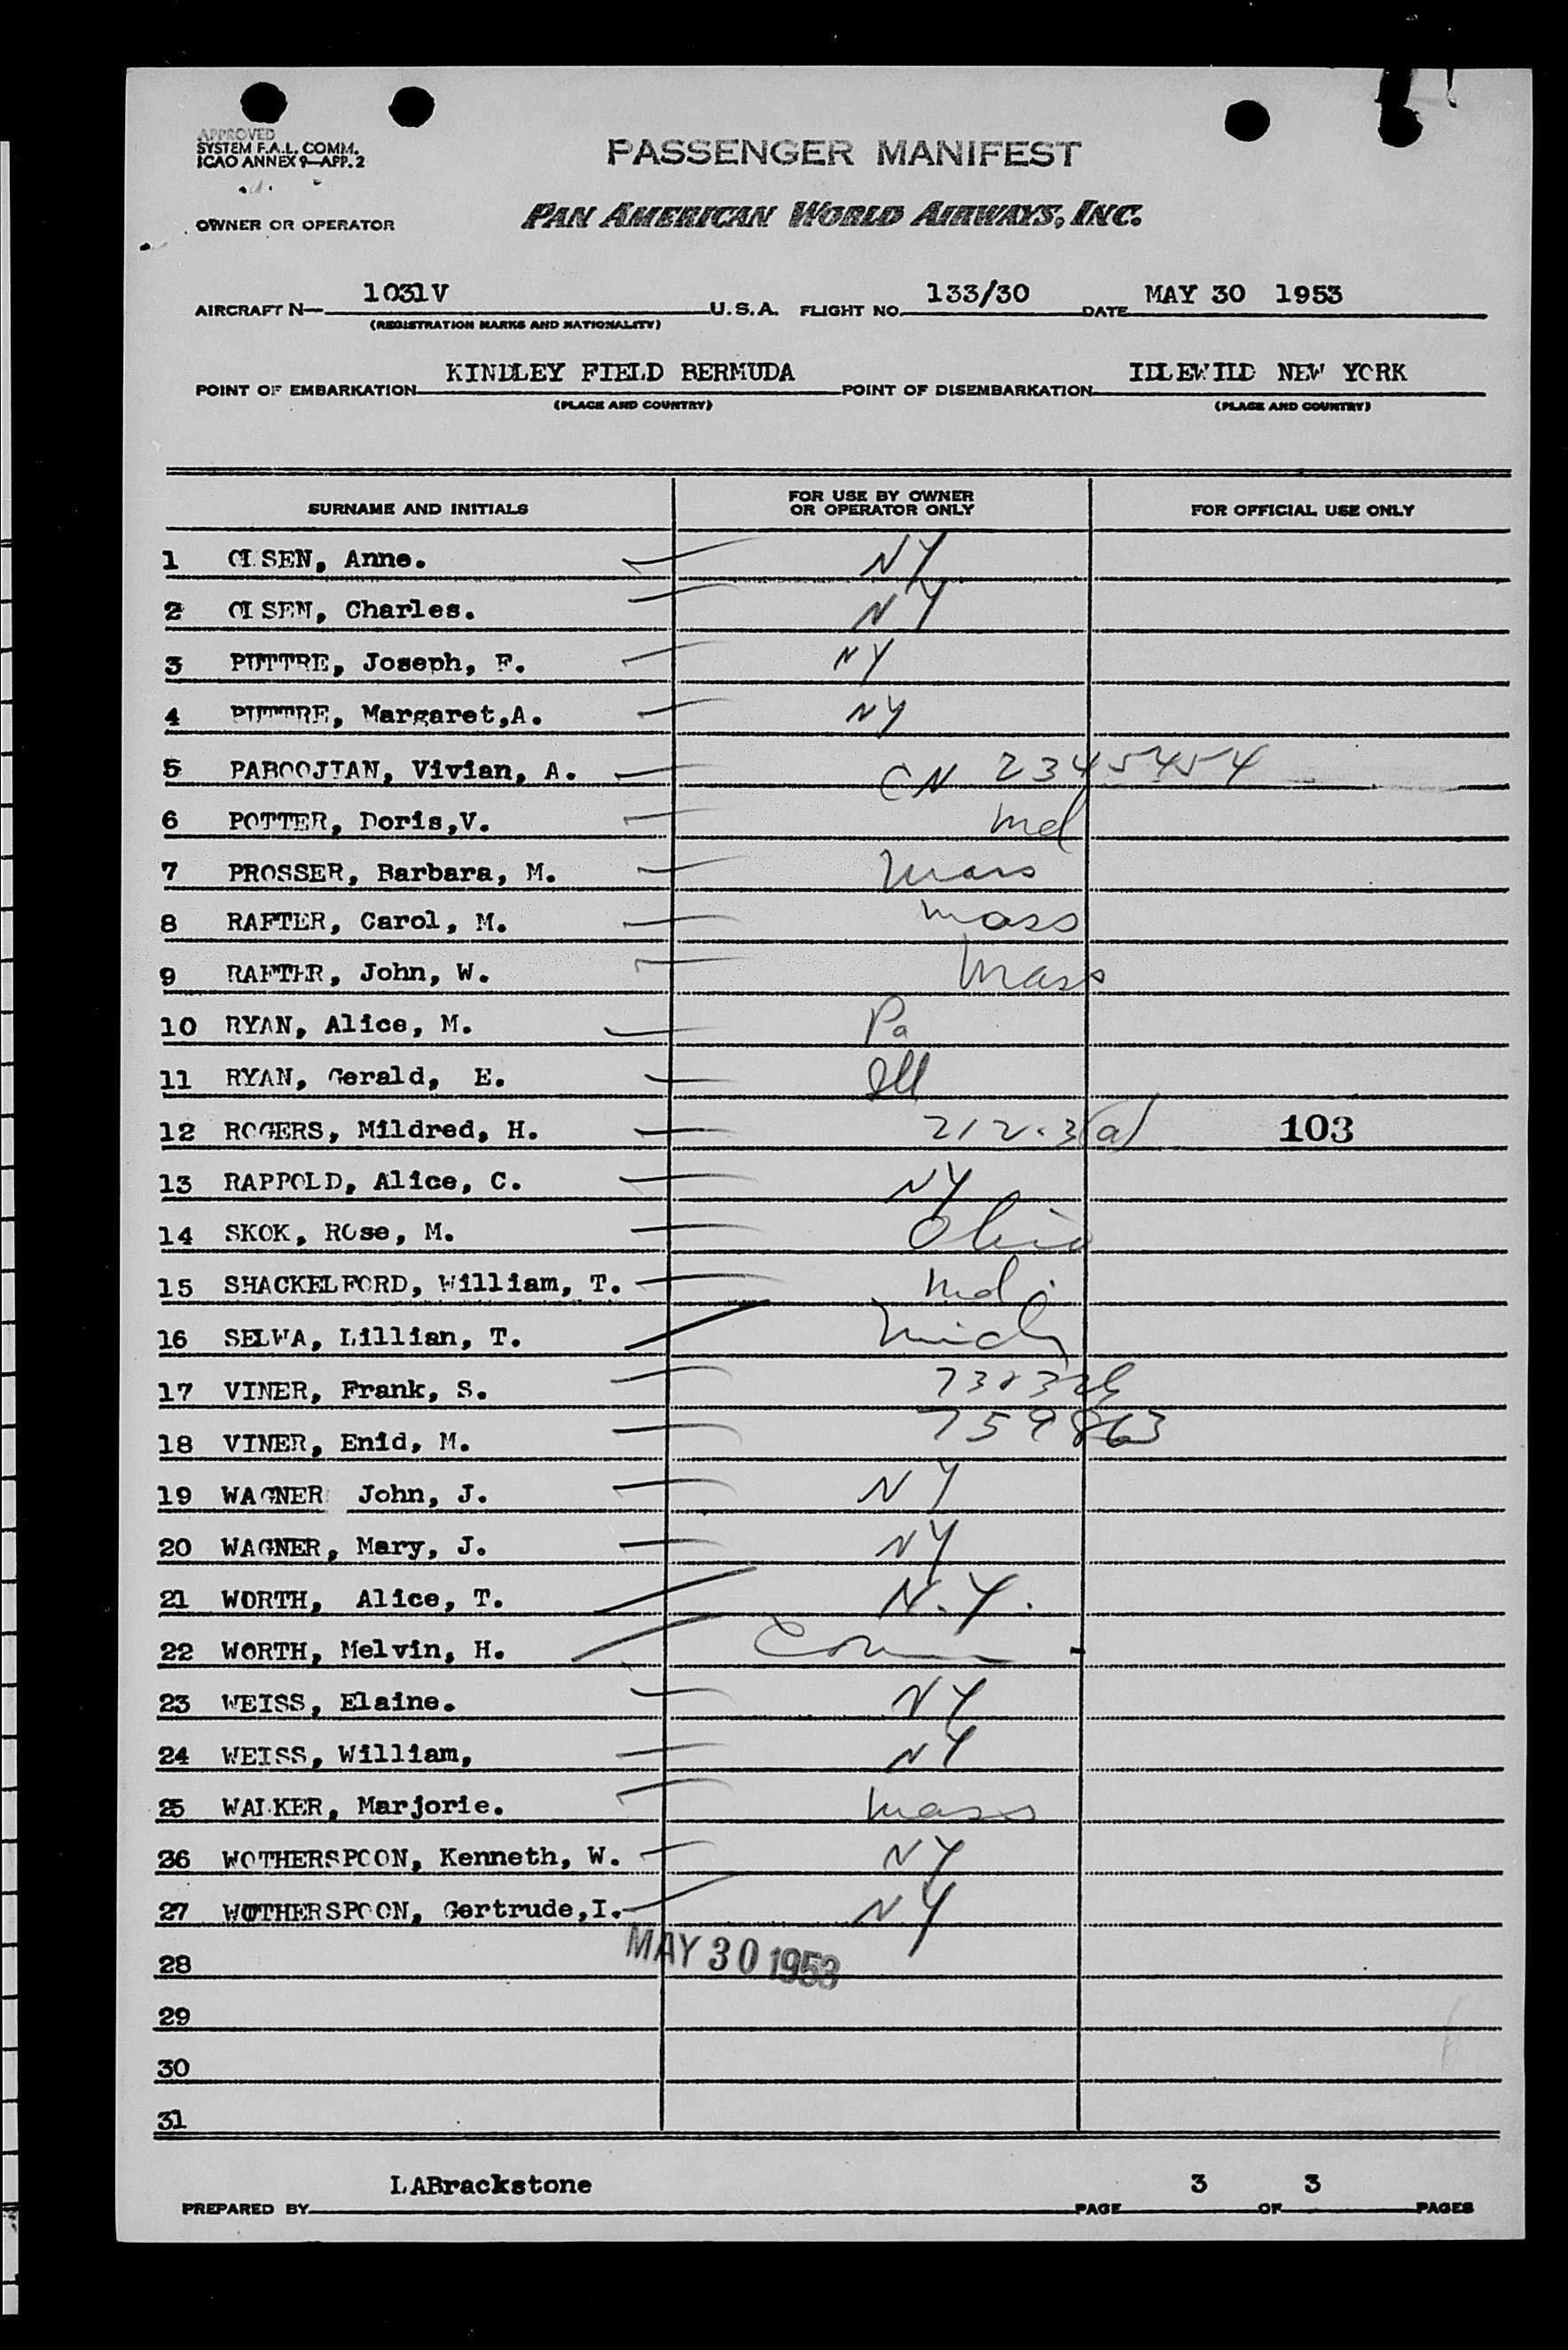 APPROVED
SYSTEM F.A.L. COMM.
ICAO ANNEX 9—APP. 2
PASSENGER MANIFEST
OWNER OR OPERATOR PAN AMERICAN WORLD AIRWAYS, INC.
AIRCRAFT N— 1031V U.S.A. FLIGHT NO. 133/30 DATE MAY 30 1953
(REGISTRATION MARKS AND NATIONALITY)
POINT OF EMBARKATION KINDLEY FIELD BERMUDA POINT OF DISEMBARKATION IDLEWILD NEW YORK
(PLACE AND COUNTRY) (PLACE AND COUNTRY)
SURNAME AND INITIALS FOR USE BY OWNER OR OPERATOR ONLY FOR OFFICIAL USE ONLY
1 OLSEN, Anne. NY
2 OLSEN, Charles. NY
3 PUTTRE, Joseph, F. NY
4 PUTTRE, Margaret,A. NY
5 PABOOJIAN, Vivian, A. CN 2345454
6 POTTER, Doris,V. Md
7 PROSSER, Barbara, M. Mass
8 RAFTER, Carol, M. Mass
9 RAFTER, John, W. Mass
10 RYAN, Alice, M. Pa
11 RYAN, Gerald, E. Ill
12 ROGERS, Mildred, H. 212.3(a) 103
13 RAPPOLD, Alice, C. NY
14 SKOK, ROse, M. Ohio
15 SHACKELFORD, William, T. Md.
16 SELWA, Lillian, T. Mich
17 VINER, Frank, S.
18 VINER, Enid, M. 759863
19 WAGNER John, J. NY
20 WAGNER, Mary, J. NY
21 WORTH, Alice, T. N.Y.
22 WORTH, Melvin, H. Conn
23 WEISS, Elaine. NY
24 WEISS, William, NY
25 WALKER, Marjorie. Mass
26 WOTHERSPOON, Kenneth, W. NY
27 WOTHERSPOON, Gertrude,I. NY
MAY 30 1953
28
29
30
31
PREPARED BY LABrackstone PAGE 3 OF 3 PAGES